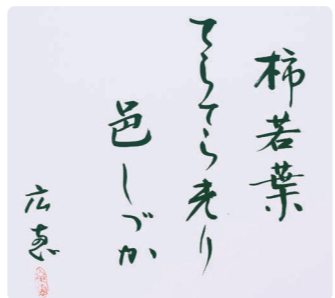 柿若葉
てらてら光り
邑しづか
広恵